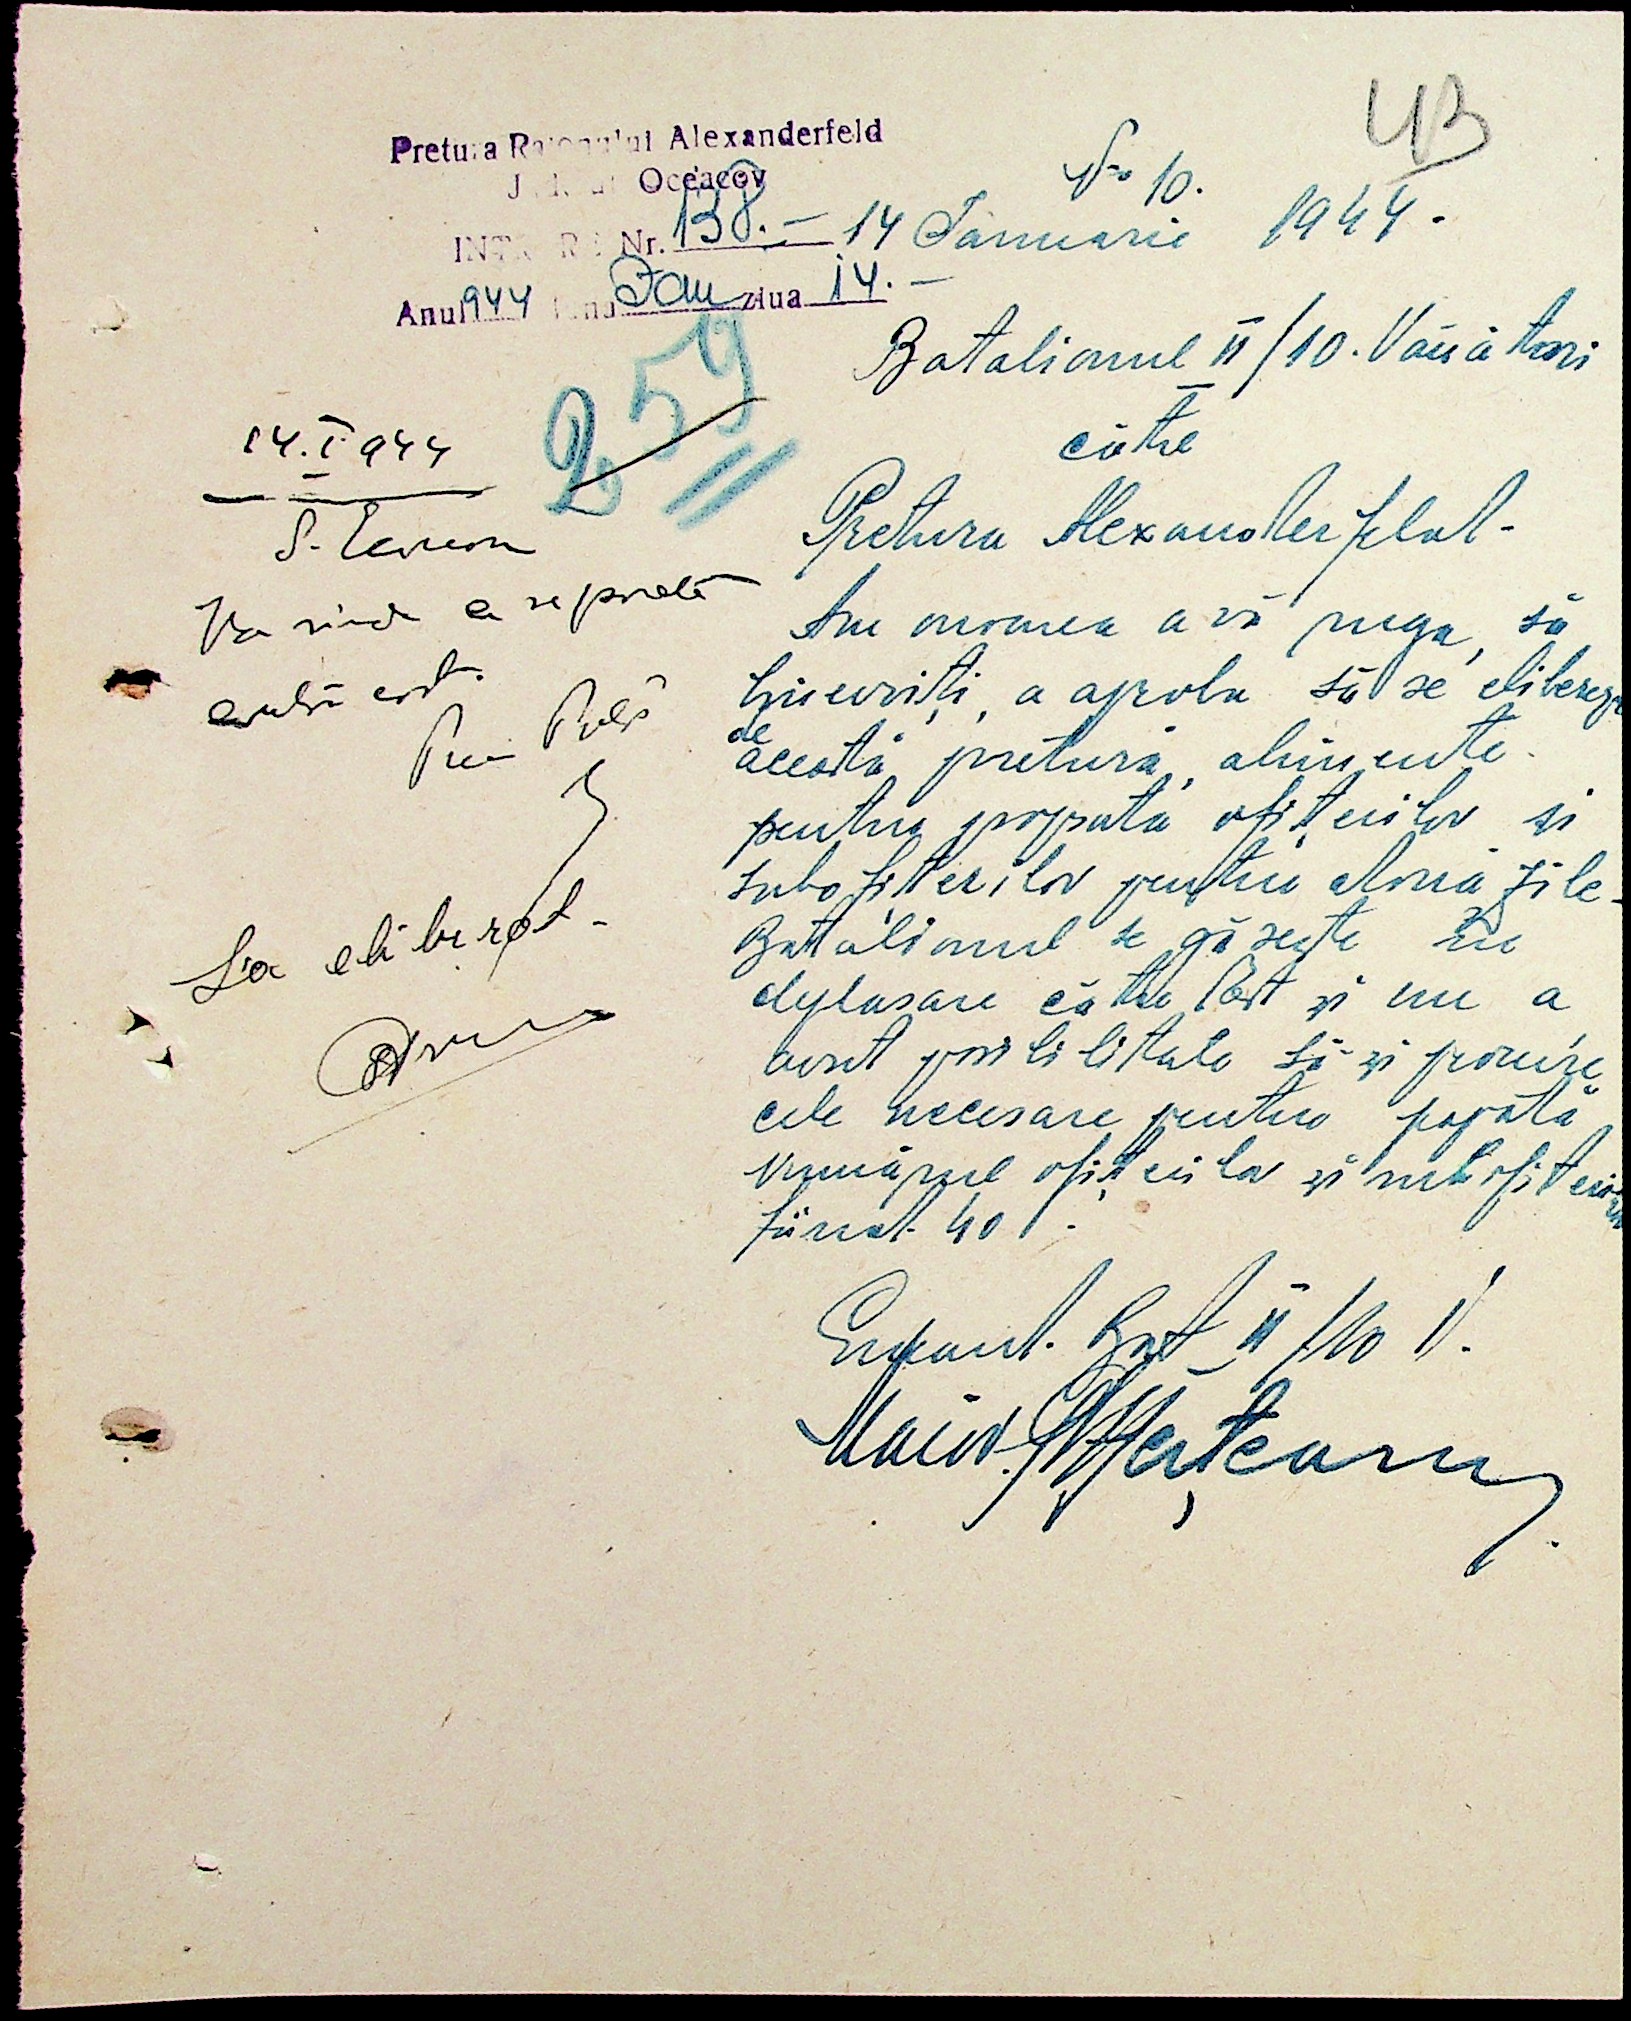 43
Pretura Raionului Alexanderfeld
Județul Oceacov
INTRARE Nr. 138.-
Anul 944 luna Ian ziua 14.-
No 10.
14 Ianuarie 1944.
259
Batalionul II/10. Vânători
către
Pretura Alexanderfeld-
Am onoarea a vă ruga, să
binevoiți, a aproba să se elibereze
de
această pretură, alimente
pentru popota ofițerilor și
subofițerilor pentru două zile-
Batalionul se găsește în
deplasare către Est și nu a
avut posibilitate să-și procure
cele necesare pentru popotă
Numărul ofițerilor și subofițerilor
fiind 40.
Comand. Bat II/10 V.
Maior
14.I.944
Va
S'a eliberat-